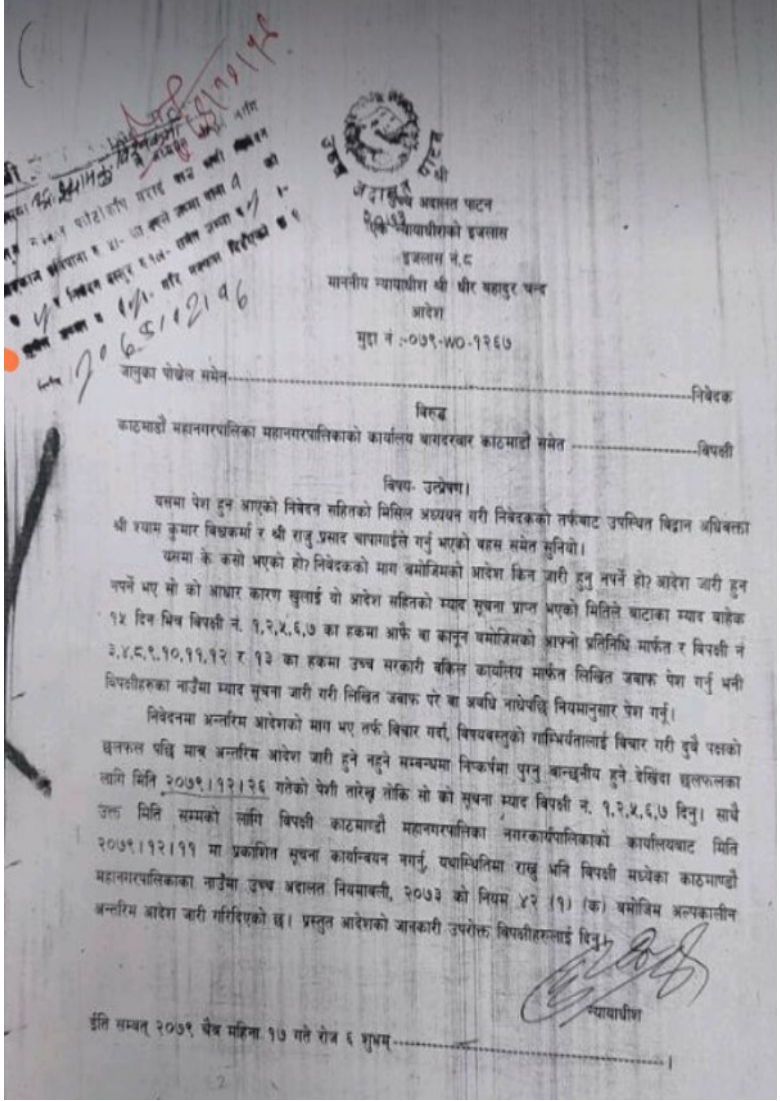 उच्च अदालत पाटन
२०७३
श्री
उच्च अदालत पाटन
एक न्यायाधीशको इजलास
इजलास नं.८
माननीय न्यायाधीश श्री धीर बहादुर चन्द
आदेश
मुद्दा नं :-०७९-WO-१२६७
जानुका पोखेल समेत------------------------------------------------निवेदक
बिरुद्ध
काठमाडौं महानगरपालिका महानगरपालिकाको कार्यालय बागदरबार काठमाडौं समेत ----------------विपक्षी
विषय- उत्प्रेषण।
यसमा पेश हुन आएको निवेदन सहितको मिसिल अध्ययन गरी निवेदकको तर्फबाट उपस्थित बिद्वान अधिवक्ता
श्री श्याम कुमार बिश्वकर्मा र श्री राजु प्रसाद चापागाईले गर्नु भएको बहस समेत सुनियो।
यसमा के कसो भएको हो? निवेदकको माग बमोजिमको आदेश किन जारी हुनु नपर्ने हो? आदेश जारी हुन
नपर्ने भए सो को आधार कारण खुलाई यो आदेश सहितको म्याद सूचना प्राप्त भएको मितिले बाटाका म्याद बाहेक
१५ दिन भित्र बिपक्षी नं. १,२,५,६,७ का हकमा आफै वा कानून बमोजिमको आफ्नो प्रतिनिधि मार्फत र बिपक्षी नं
३,४,८,९,१०,११,१२ र १३ का हकमा उच्च सरकारी वकिल कार्यालय मार्फत लिखित जवाफ पेश गर्नु भनी
विपक्षीहरुका नाउँमा म्याद सूचना जारी गरी लिखित जवाफ परे वा अवधि नाघेपछि नियमानुसार पेश गर्नू।
निवेदनमा अन्तरिम आदेशको माग भए तर्फ बिचार गर्दा, विषयवस्तुको गाम्भिर्यतालाई बिचार गरी दुवै पक्षको
छलफल पछि मात्र अन्तरिम आदेश जारी हुने नहुने सम्बन्धमा निष्कर्षमा पुग्नु वान्छनीय हुने देखिंदा छलफलका
लागि मिति २०७९।१२।२६ गतेको पेशी तारेख तोकि सो को सूचना म्याद बिपक्षी नं. १,२,५,६,७ दिनु। साथै
उक्त मिति सम्मको लागि बिपक्षी काठमाण्डौ महानगरपालिका नगरकार्यपालिकाको कार्यालयबाट मिति
२०७९।१२।११ मा प्रकाशित सूचना कार्यान्वयन नगर्नु, यथास्थितिमा राख्नु भनि बिपक्षी मध्येका काठमाण्डौ
महानगरपालिकाका नाउँमा उच्च अदालत नियमावली, २०७३ को नियम ४२ (१) (क) बमोजिम अल्पकालीन
अन्तरिम आदेश जारी गरिदिएको छ। प्रस्तुत आदेशको जानकारी उपरोक्त बिपक्षीहरुलाई दिनु।
न्यायाधीश
ईति सम्वत् २०७९ चैत्र महिना १७ गते रोज ६ शुभम्------------------------------------।